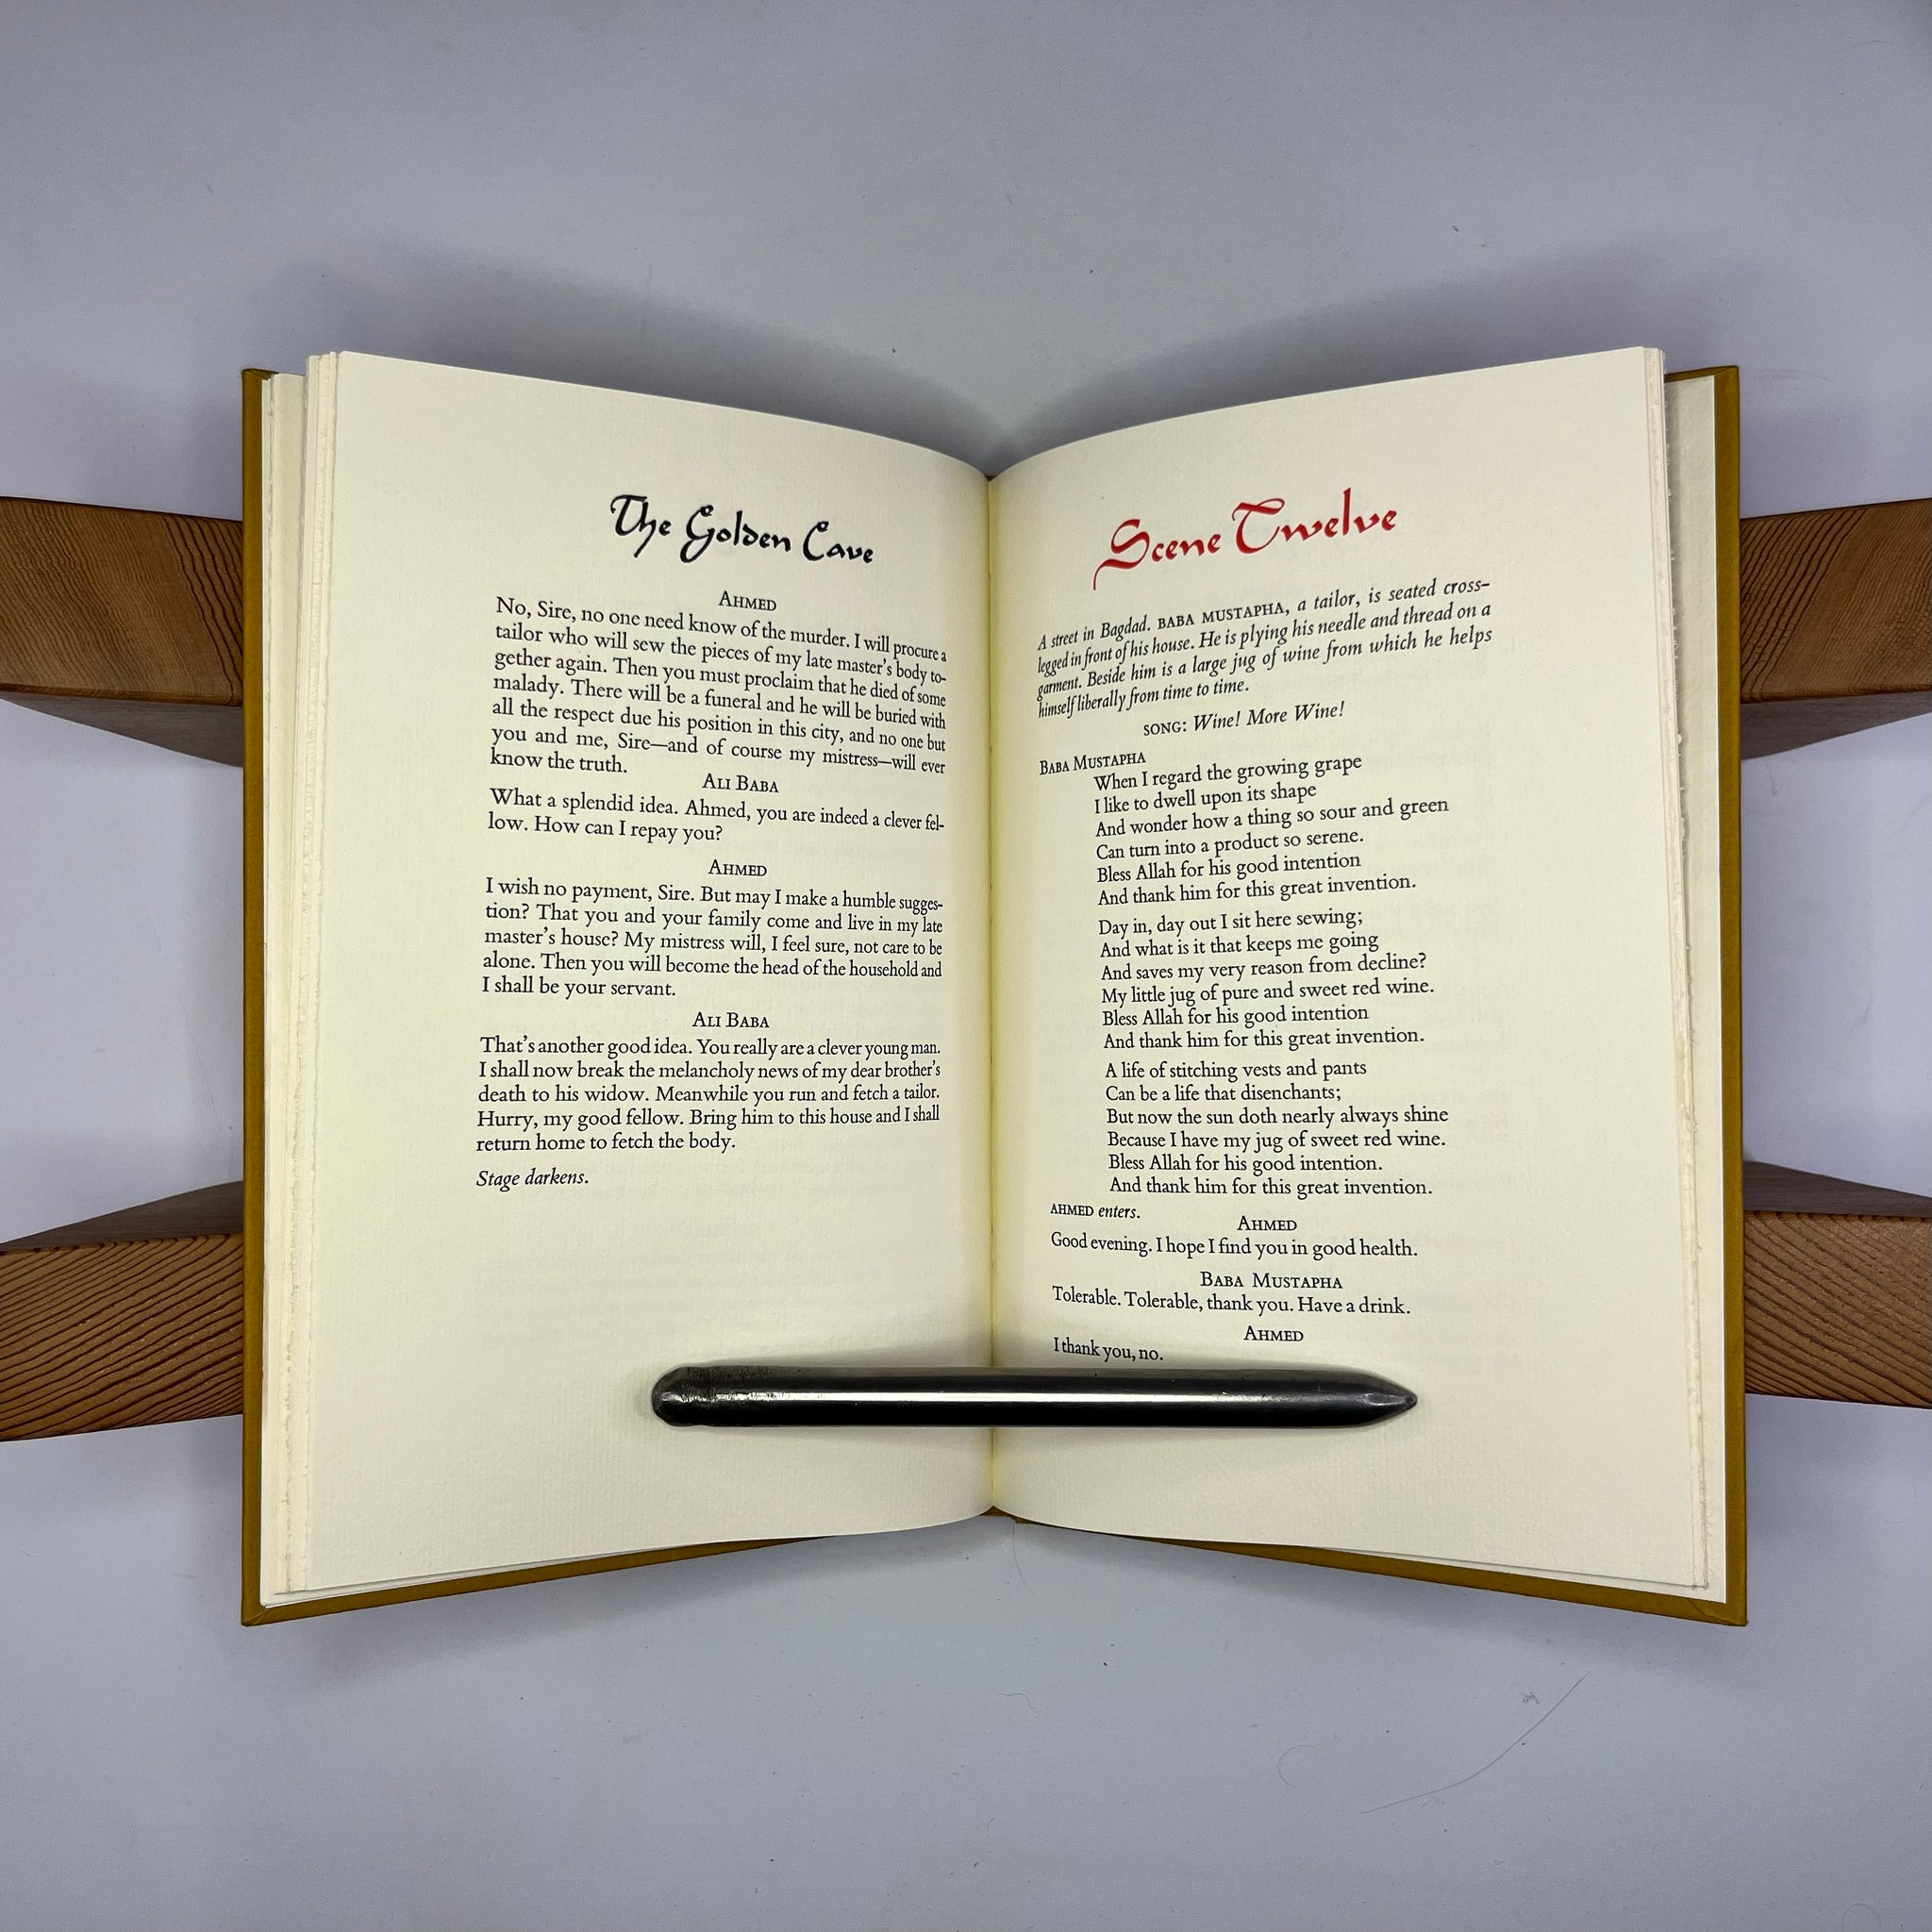 The Golden Cave
AHMED
No, Sire, no one need know of the murder. I will procure a
tailor who will sew the pieces of my late master's body to-
gether again. Then you must proclaim that he died of some
malady. There will be a funeral and he will be buried with
all the respect due his position in this city, and no one but
you and me, Sire—and of course my mistress—will ever
know the truth.
ALI BABA
What a splendid idea. Ahmed, you are indeed a clever fel-
low. How can I repay you?
AHMED
I wish no payment, Sire. But may I make a humble sugges-
tion? That you and your family come and live in my late
master's house? My mistress will, I feel sure, not care to be
alone. Then you will become the head of the household and
I shall be your servant.
ALI BABA
That's another good idea. You really are a clever young man.
I shall now break the melancholy news of my dear brother's
death to his widow. Meanwhile you run and fetch a tailor.
Hurry, my good fellow. Bring him to this house and I shall
return home to fetch the body.
Stage darkens.
Scene Twelve
A street in Bagdad. BABA MUSTAPHA, a tailor, is seated cross-
legged in front of his house. He is plying his needle and thread on a
garment. Beside him is a large jug of wine from which he helps
himself liberally from time to time.
SONG: Wine! More Wine!
BABA MUSTAPHA
When I regard the growing grape
I like to dwell upon its shape
And wonder how a thing so sour and green
Can turn into a product so serene.
Bless Allah for his good intention
And thank him for this great invention.
Day in, day out I sit here sewing;
And what is it that keeps me going
And saves my very reason from decline?
My little jug of pure and sweet red wine.
Bless Allah for his good intention
And thank him for this great invention.
A life of stitching vests and pants
Can be a life that disenchants;
But now the sun doth nearly always shine
Because I have my jug of sweet red wine.
Bless Allah for his good intention.
And thank him for this great invention.
AHMED enters.
AHMED
Good evening. I hope I find you in good health.
BABA MUSTAPHA
Tolerable. Tolerable, thank you. Have a drink.
AHMED
I thank you, no.